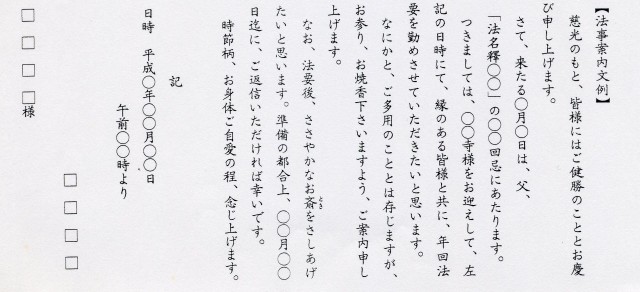 【法事案内文例】
慈光のもと、皆様にはご健勝のこととお慶
び申し上げます。
さて、来たる〇月〇日は、父、
「法名釋〇〇」の〇〇回忌にあたります。
つきましては、〇〇寺様をお迎えして、左
記の日時にて、縁のある皆様と共に、年回法
要を勤めさせていただきたいと思います。
なにかと、ご多用のこととは存じますが、
お参り、お焼香下さいますよう、ご案内申し
上げます。
なお、法要後、ささやかなお斎をさしあげ
とき
たいと思います。準備の都合上、〇〇月〇〇
日迄に、ご返信いただければ幸いです。
時節柄、お身体ご自愛の程、念じ上げます。
記
日時　平成〇年〇〇月〇〇日
午前〇〇時より
□　□　□　□
□　□　□　□様